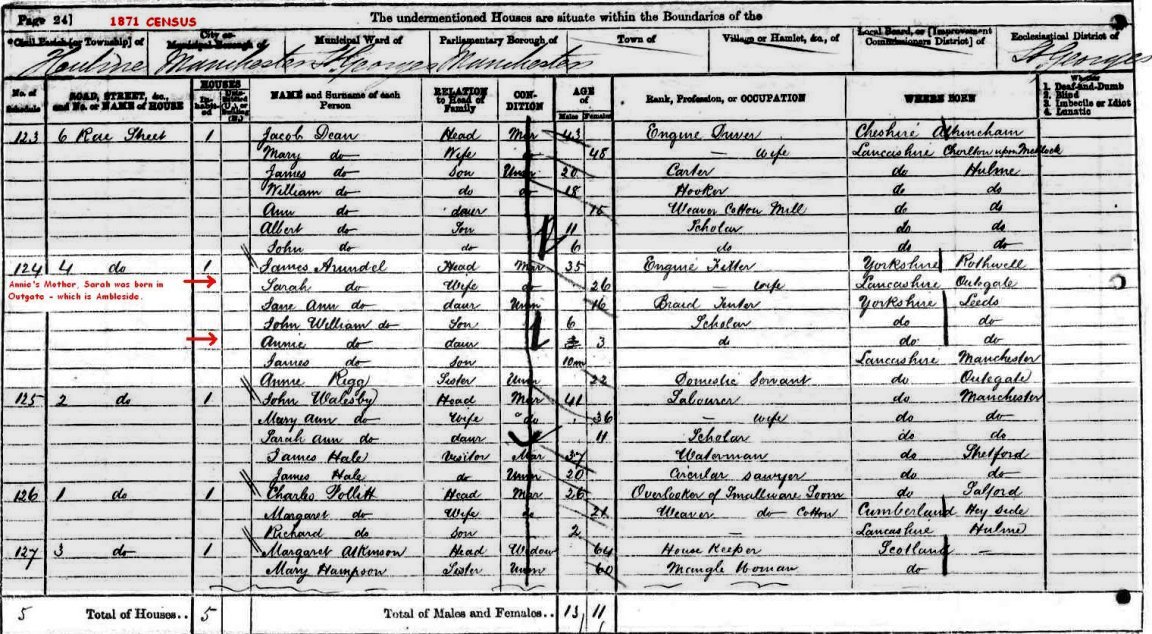 Page 24] 1871 CENSUS The undermentioned Houses are situate within the Boundaries of the
Civil Parish [or Township] of City or Municipal Borough of Municipal Ward of Parliamentary Borough of Town of Village or Hamlet, &c., of Local Board, or [Improvement Commissioners District] of Ecclesiastical District of
Manchester St Georges Manchester St Georges
No. of Schedule ROAD, STREET, &c., and No. or NAME of HOUSE HOUSES Inhabited NAME and Surname of each Person RELATION to Head of Family CONDITION AGE of Males Females Rank, Profession, or OCCUPATION WHERE BORN Whether 1. Deaf-and-Dumb 2. Blind 3. Imbecile or Idiot 4. Lunatic
123 6 Rae Street 1 Jacob Dean Head Mar 43 Engine Driver Cheshire Altrincham
Mary do Wife do 48 — wife Lancashire Chorlton upon Medlock
James do Son Unm 20 Carter do Hulme
William do do do 18 Hooker do do
Ann do daur 15 Weaver Cotton Mill do do
Albert do Son 11 Scholar do do
John do do 6 do do do
124 4 do 1 James Arundel Head Mar 35 Engine Fitter Yorkshire Rothwell
Annie's Mother, Sarah was born in Outgate - which is Ambleside.
Sarah do Wife do 26 — wife Lancashire Outegate
Jane Ann do daur Unm 16 Braid Yorkshire Leeds
John William do Son 6 Scholar do do
Annie do daur 3 do do do
James do Son 10m Lancashire Manchester
Annie Rigg Sister Unm 22 Domestic Servant do Outegate
125 2 do 1 John Walesby Head Mar 41 Labourer do Manchester
Mary Ann do Wife do 36 — wife do do
Sarah Ann do daur 11 Scholar do do
James Hale Visitor Mar 37 Waterman do Shetford
James Hale do Unm 20 Circular Sawyer do do
126 1 do 1 Charles Pollitt Head Mar 26 Overlooker of Smallware Loom do Salford
Margaret do Wife do 21 Weaver do Cotton Cumberland Hey side
Richard do son 2 — Lancashire Hulme
127 3 do 1 Margaret Atkinson Head Widow 64 House Keeper Scotland —
Mary Hampson Sister Unm 60 Mangle Woman do
5 Total of Houses.. 5 Total of Males and Females.. 13 11